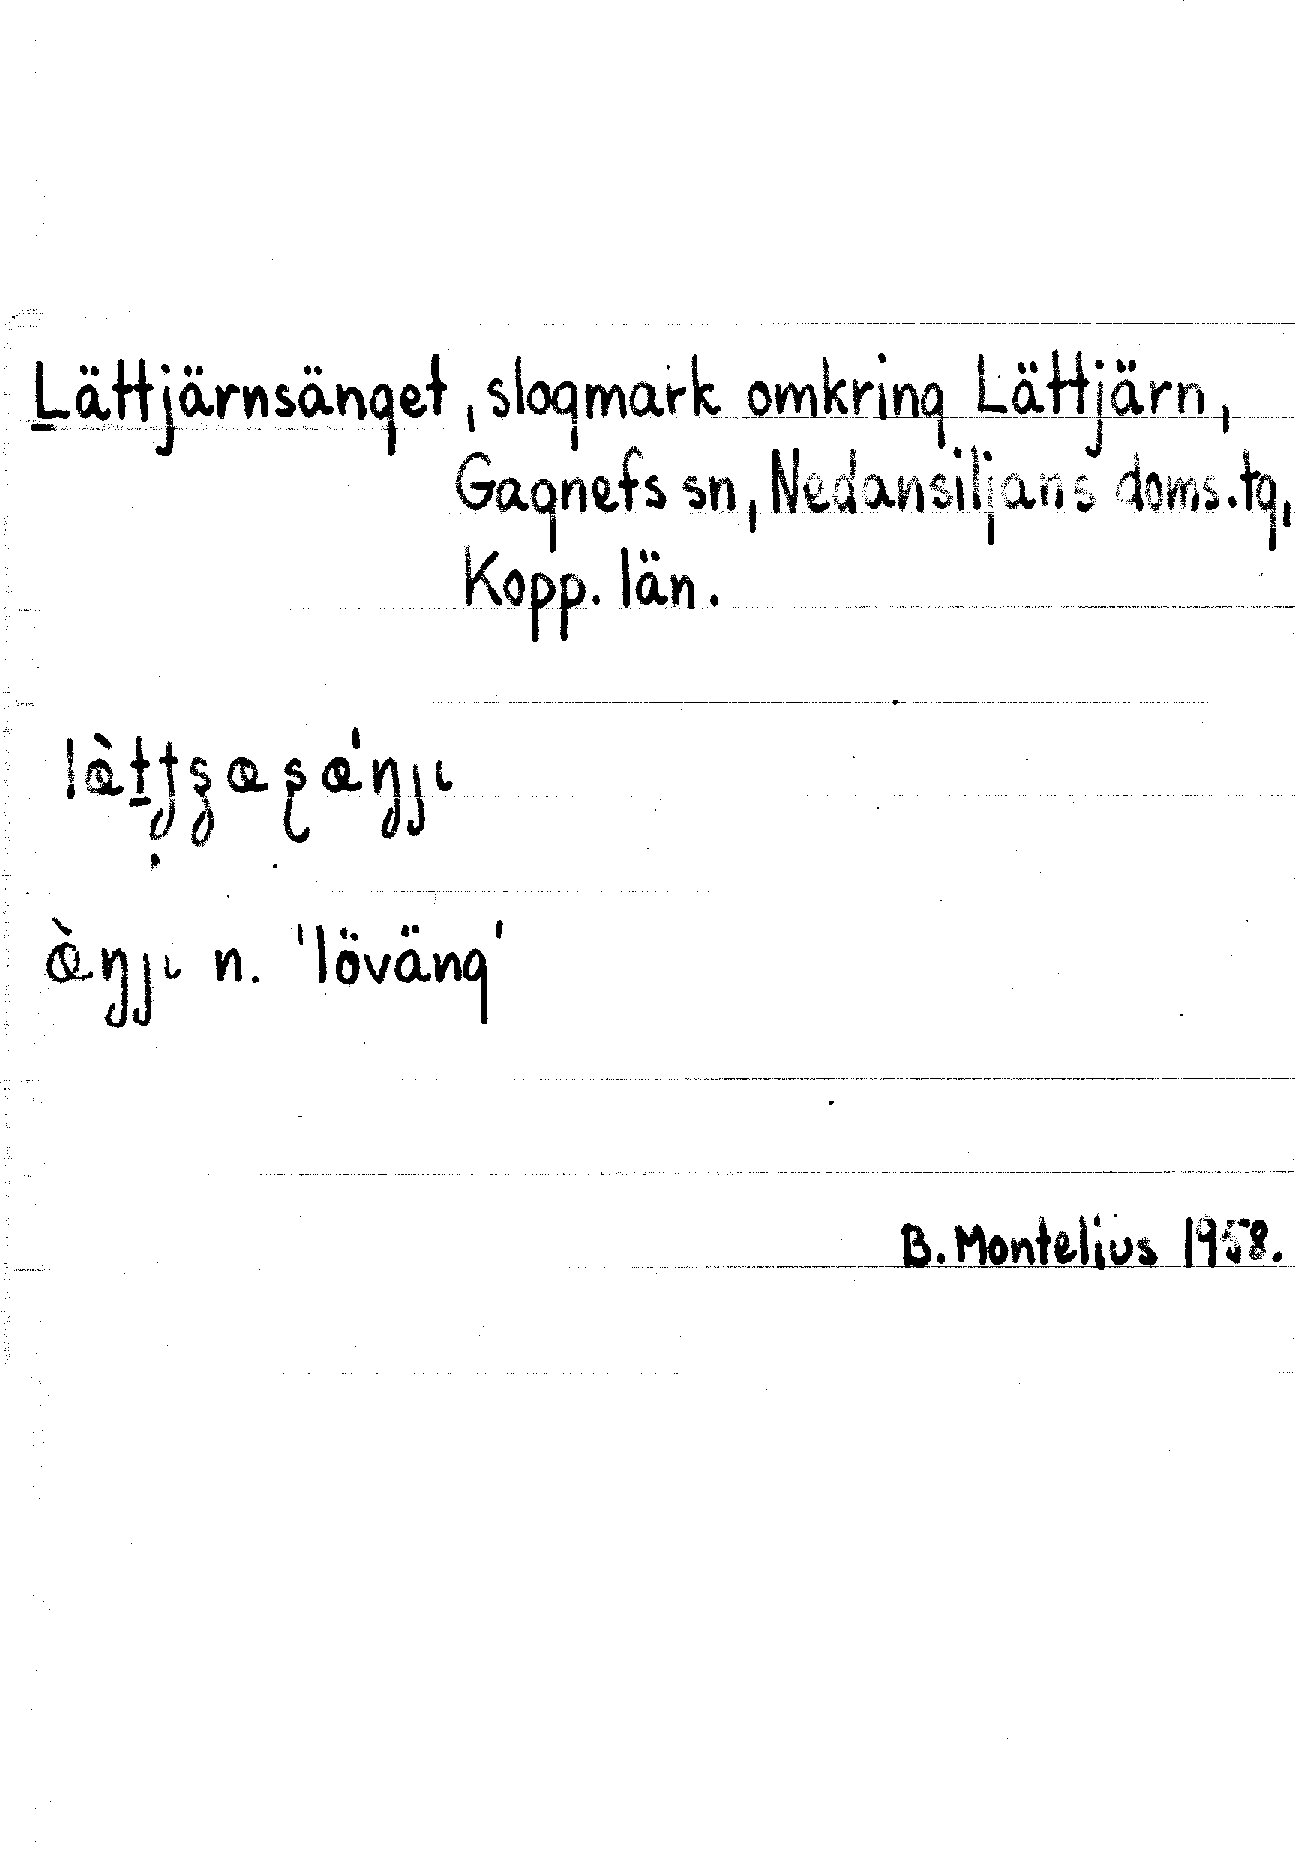 Lättjärnsänget, slogmark omkring Lättjärn,
Gagnefs sn, Nedansiljans doms.tg,
Kopp. län.
n. 'löväng'
B. Montelius 1958.